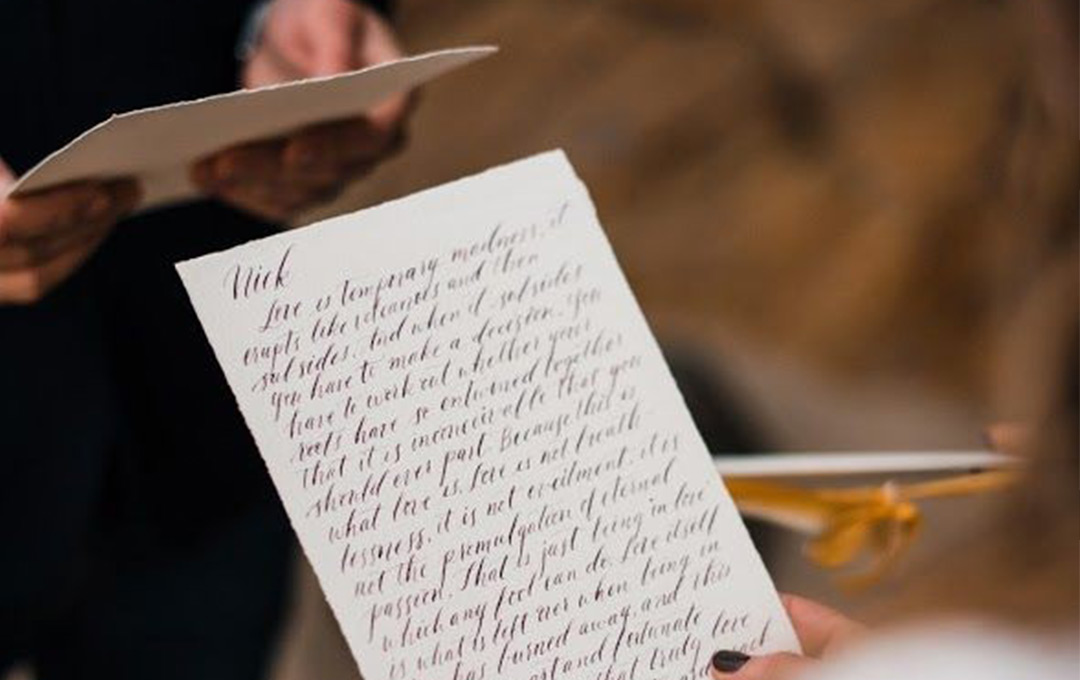 Nick
Love is temporary madness, it
erupts like volcanoes and then
subsides. And when it subsides
you have to make a decision. You
have to work out whether your
roots have so entwined together
that it is inconceivable that you
should ever part. Because this is
what love is. Love is not breath-
lessness, it is not excitment, it is
not the promulgation of eternal
passion. That is just being in love
which any fool can do. Love itself
is what is left over when being in
has burned away, and this
art and fortunate
love
that truly